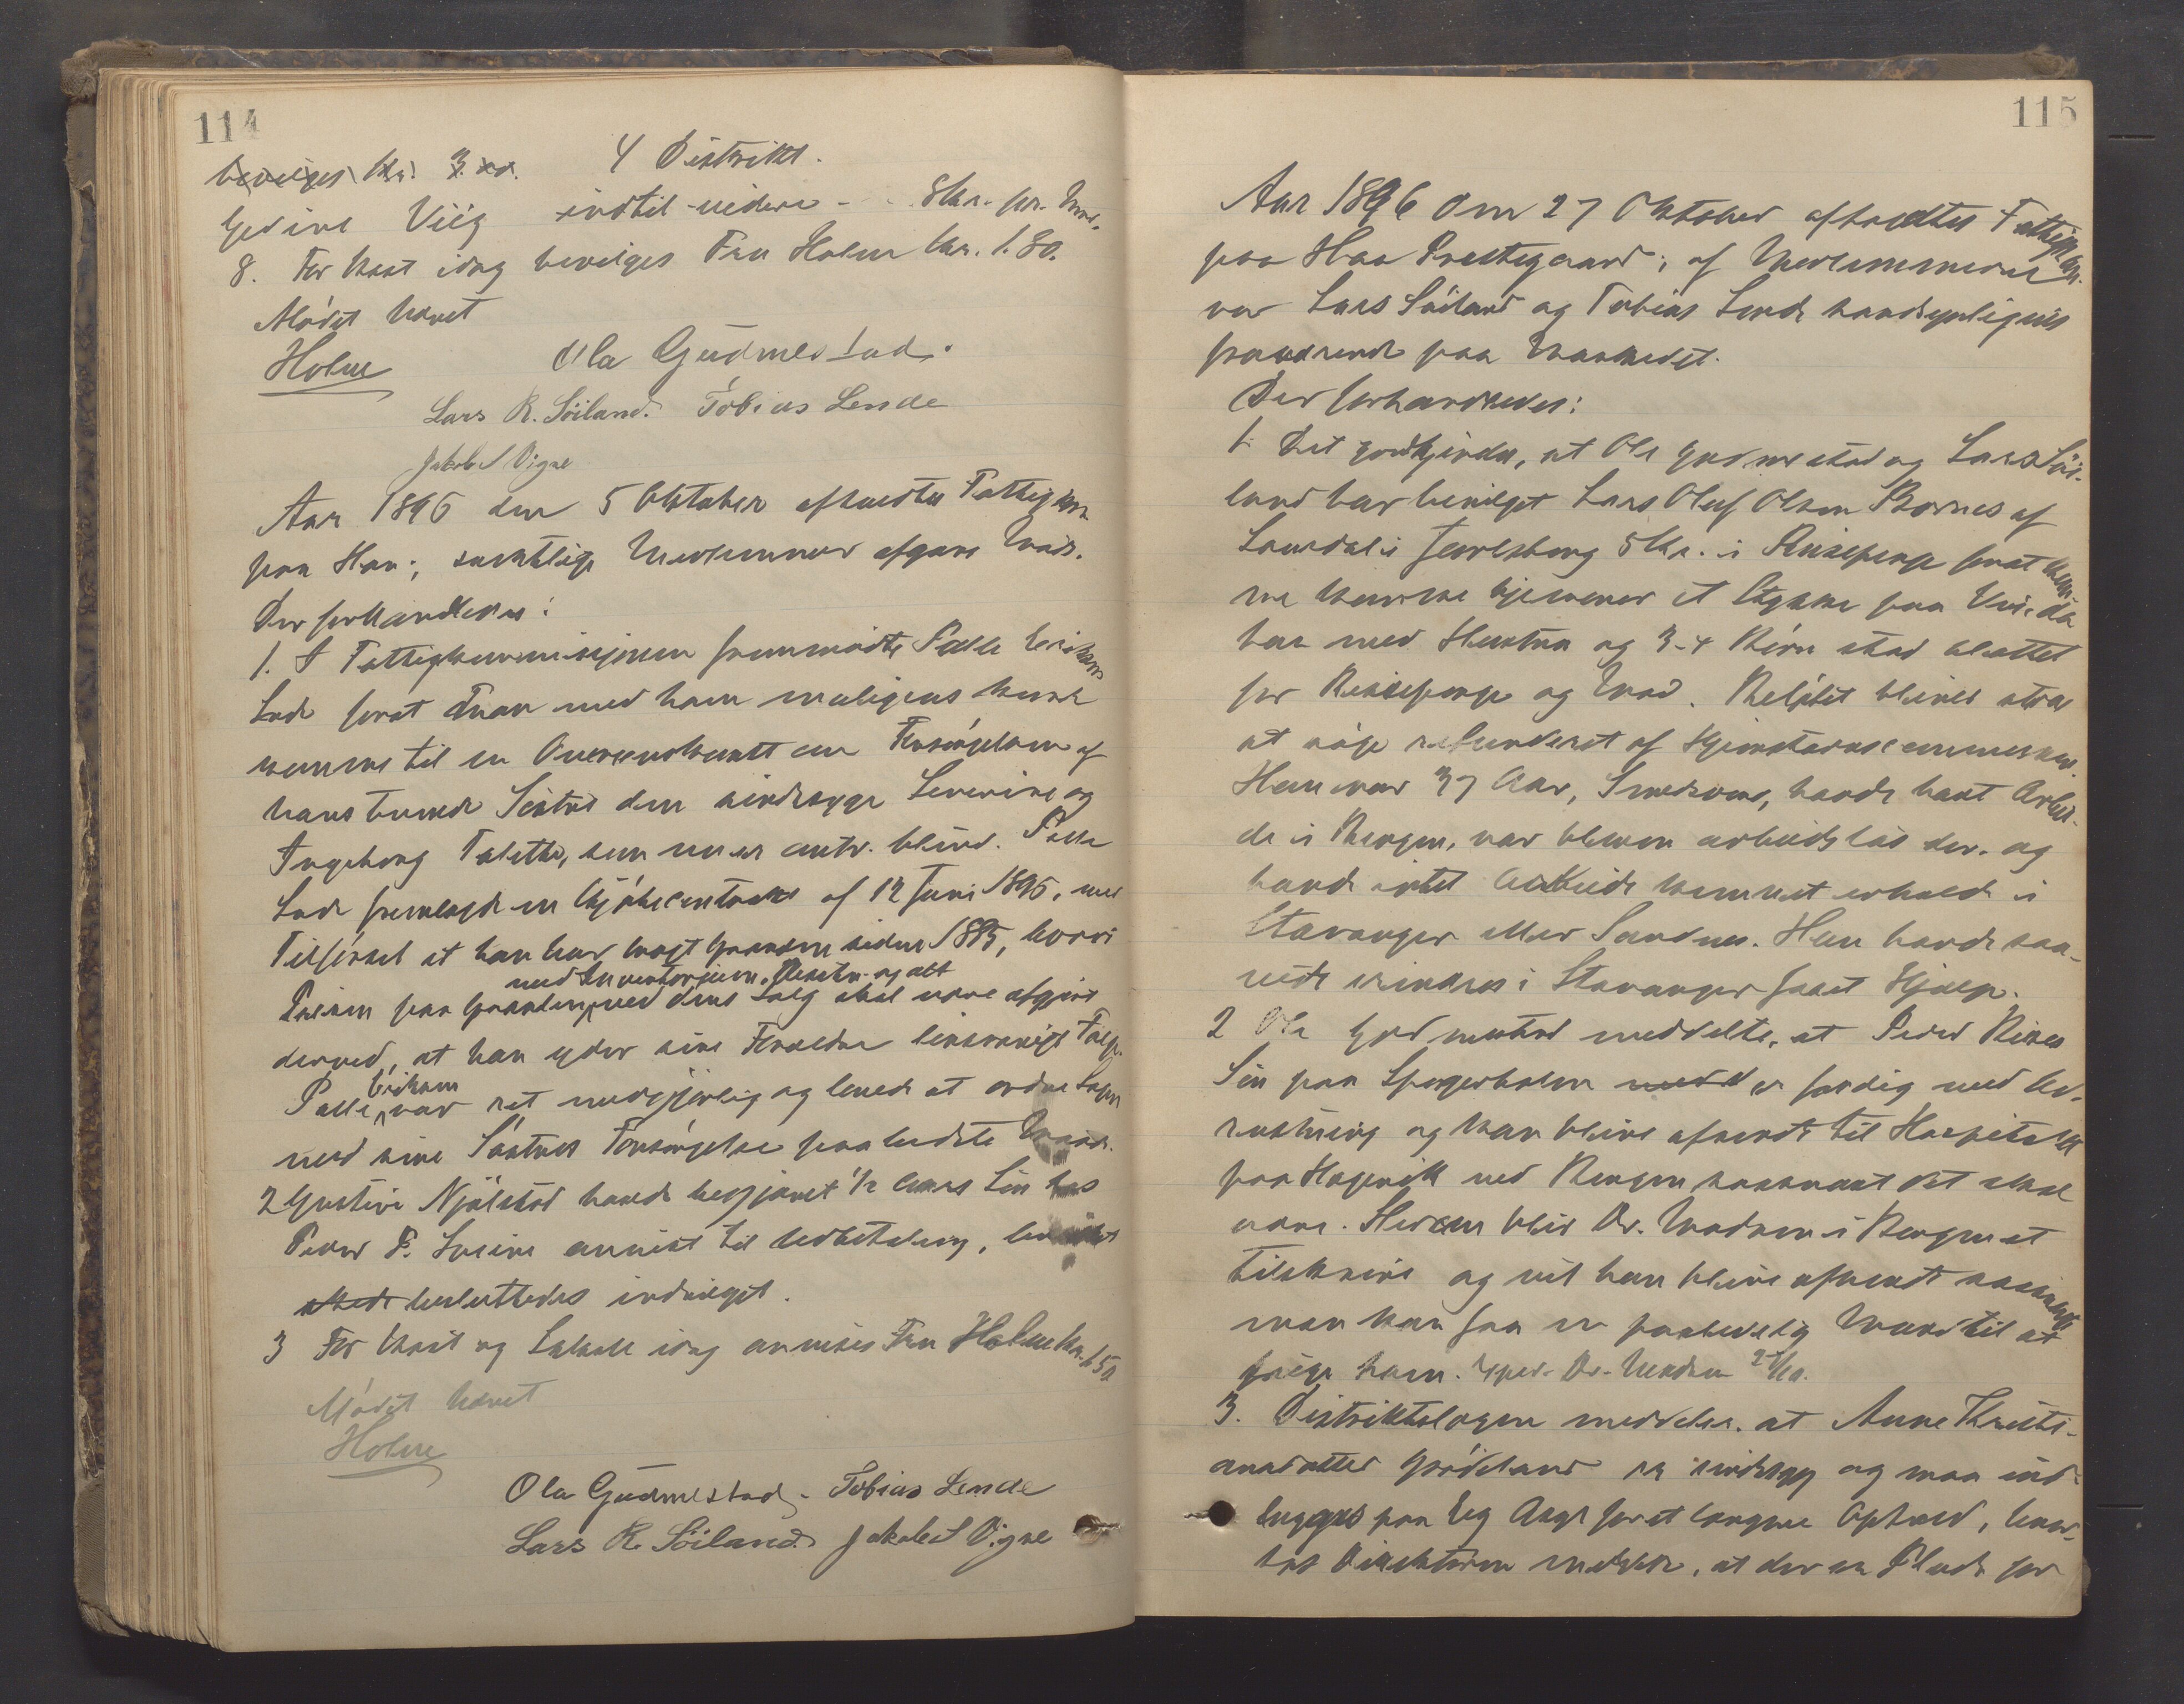 114
bevilges Kr. 3.00. 4 Distrikt.
Gedine Viig indtil videre - 8 Kr. pr. Mnd.
8. For Kost idag bevilges Fru Holme Kr. 1.80.
Mødet hævet
Holme Ola Gudmestad.
Lars R. Söiland. Tobias Lende
Jakob S Vigre
Aar 1896 den 5 Oktober afholdtes Fattigkom.
paa Haa; samtlige Medlemmer afgave Møde.
Der forhandledes:
1. I Fattigkommisjonen fremmødte Palle Eriksen
Lode forat man med ham muligens kunde
komme til en Overenskomst om Forsørgelsen af
hans tvende Søstre den sindssyge Severine og
Ingeborg Talette, som nu er blind. Palle
Lode fremlagde en Kjøbecontrakt af 12 Juni 1895, med
Tilførsel at han har brugt Gaarden siden 1885, hvori
med Inventarium, Besætn. og alt
Prisen paa Gaarden ved dens Salg skal være afgjort
derved, at han yder sine Forældre livsvarigt Følge.
Eriksen
Palle var ret medgjørlig og lovede at ordne Sagen
med sine Søstres Forsørgelse paa bedste Maade.
2 Gustine Njølstad havde begjæret 1/2 Aars Løn hos
Peder P. anvist til Udbetaling,
skede besluttedes indvilget.
3 For Kost og Lokale idag anvises Fru Holme Kr. 1.50
Mødet hævet
Holme
Ola Gudmestad. Tobias Lende
Lars R. Söiland. Jakob S Vigre
115
Aar 1896 den 27 Oktober afholdtes Fattigkom.
paa Haa Prestegaard; af Medlemmerne
var Lars Söiland og Tobias Lende sandsynligvis
fraværende paa Markedet.
Der forhandledes:
1. Det godkjendes, at Ole Gudmestad og Lars Söi-
land har bevilget Lars Oluf Olsen Bornes af
Laurdal i Jarlsberg 5 Kr. i Reisepenge forat kun-
ne komme hjemover et Stykke paa Vei, da
han med Hustru og 3-4 Børn stod blottet
for Reisepenge og Mad. Beløbet blives
at søge refunderet af Hjemstavnscommunen.
Han var 37 Aar, Smedsvend, havde havt Arbei-
de i Bergen, var bleven arbeidsløs der og
havde intet Arbeide kunnet erholde i
Stavanger eller Sandnes. Han havde saa-
vidt erindres i Stavanger faaet Hjælp.
2 Ole Gudmestad meddelte, at Peder
Søn paa er færdig med Ud-
rustning og kan blive afsendt til Hospitalet
paa Hagevik ved Bergen saasnart det skal
være. Herom bliv Dr. i Bergen at
tilskrive og vil han blive afsendt saasnart
man kan faa en paalidelig Mand til at
følge ham. Exper. Dr. 28/10.
3. Distriktslægen meddeler, at Anne Kristi-
ansdatter Grødeland er sindssyg og maa ind-
lægges paa Eeg Asyl for et længere Ophold, hvor-
hos Direktøren meddeler, at der er Plads for